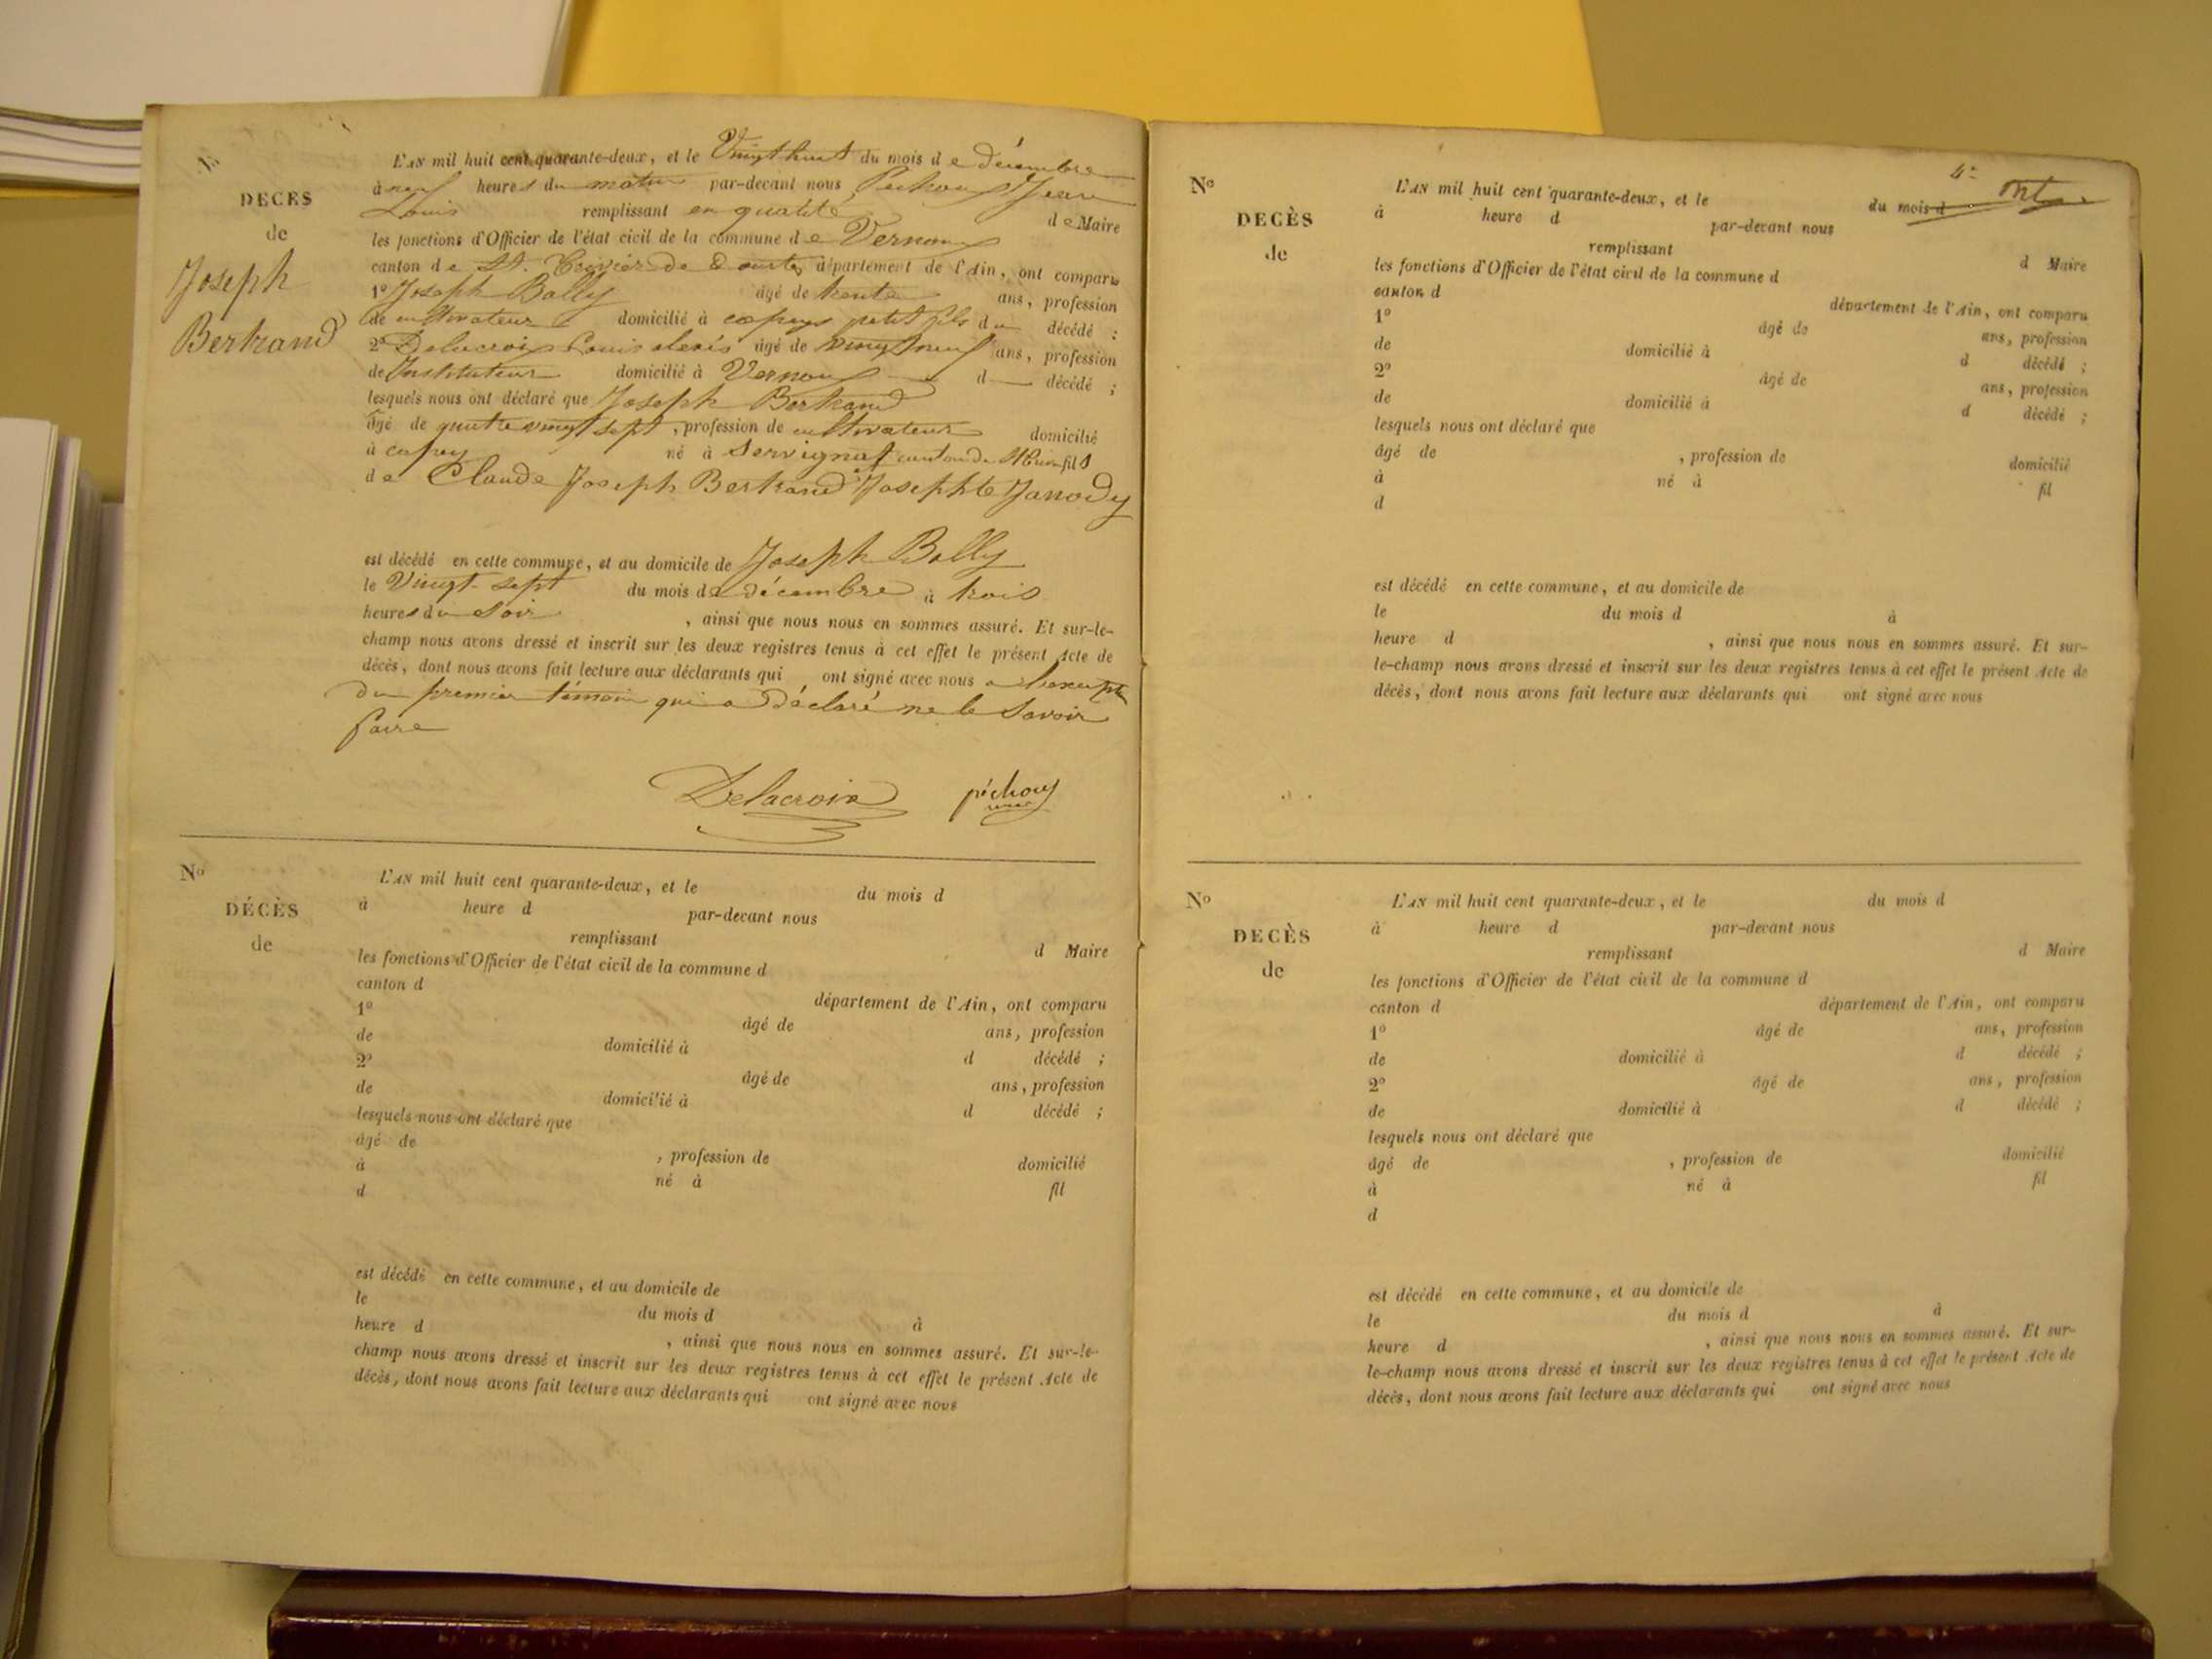 N°
DÉCÈS
de
Joseph
Bertrand
L'AN mil huit cent quarante-deux, et le Vingt huit du mois de décembre
à neuf heures du matin par-devant nous Péchoux Jean
Louis remplissant en qualité de Maire
les fonctions d'Officier de l'état civil de la commune de Vernoux
canton de St. Trivier de Courtes département de l'Ain, ont comparu
1° Joseph Bolly âgé de trente ans, profession
de cultivateur domicilié à petit fils du décédé ;
2° Delacroix Louis alexis âgé de vingt neuf ans, profession
de Instituteur domicilié à Vernoux d décédé ;
lesquels nous ont déclaré que Joseph Bertrand
âgé de quatre vingt sept, profession de cultivateur domicilié
à né à Servignat canton de fils
de Claude Joseph Bertrand et Josephte Janody
est décédé en cette commune, et au domicile de Joseph Bolly
le Vingt-sept du mois de décembre à trois
heures du soir, ainsi que nous nous en sommes assuré. Et sur-le-
champ nous avons dressé et inscrit sur les deux registres tenus à cet effet le présent Acte de
décès, dont nous avons fait lecture aux déclarants qui ont signé avec nous
du premier témoin qui a déclaré ne le savoir
faire
Delacroix péchoux
N°
DÉCÈS
de
L'AN mil huit cent quarante-deux, et le du mois d
à heure d par-devant nous
remplissant d Maire
les fonctions d'Officier de l'état civil de la commune d
canton d département de l'Ain, ont comparu
1° âgé de ans, profession
de domicilié à d décédé ;
2° âgé de ans, profession
de domicilié à d décédé ;
lesquels nous ont déclaré que
âgé de , profession de domicilié
à né à fil
d
est décédé en cette commune, et au domicile de
le du mois d à
heure d , ainsi que nous nous en sommes assuré. Et sur-le-
champ nous avons dressé et inscrit sur les deux registres tenus à cet effet le présent Acte de
décès, dont nous avons fait lecture aux déclarants qui ont signé avec nous
N°
DÉCÈS
de
L'AN mil huit cent quarante-deux, et le du mois d
à heure d par-devant nous
remplissant d Maire
les fonctions d'Officier de l'état civil de la commune d
canton d département de l'Ain, ont comparu
1° âgé de ans, profession
de domicilié à d décédé ;
2° âgé de ans, profession
de domicilié à d décédé ;
lesquels nous ont déclaré que
âgé de , profession de domicilié
à né à fil
d
est décédé en cette commune, et au domicile de
le du mois d à
heure d , ainsi que nous nous en sommes assuré. Et sur-
le-champ nous avons dressé et inscrit sur les deux registres tenus à cet effet le présent Acte de
décès, dont nous avons fait lecture aux déclarants qui ont signé avec nous
N°
DÉCÈS
de
L'AN mil huit cent quarante-deux, et le du mois d
à heure d par-devant nous
remplissant d Maire
les fonctions d'Officier de l'état civil de la commune d
canton d département de l'Ain, ont comparu
1° âgé de ans, profession
de domicilié à d décédé ;
2° âgé de ans, profession
de domicilié à d décédé ;
lesquels nous ont déclaré que
âgé de , profession de domicilié
à né à fil
d
est décédé en cette commune, et au domicile de
le du mois d à
heure d , ainsi que nous nous en sommes assuré. Et sur-
le-champ nous avons dressé et inscrit sur les deux registres tenus à cet effet le présent Acte de
décès, dont nous avons fait lecture aux déclarants qui ont signé avec nous